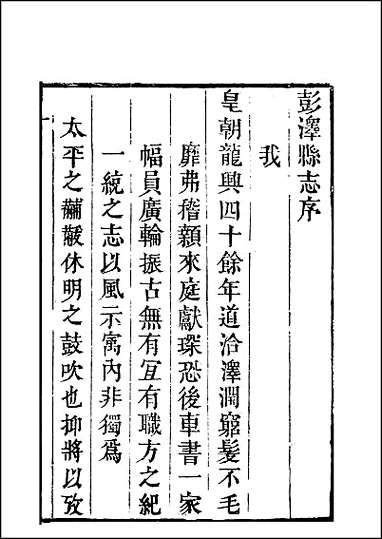 彭澤縣志序
我
皇朝龍興四十餘年道洽澤潤窮髮不毛
靡弗稽顙來庭獻琛恐後車書一家
幅員廣輪振古無有宜有職方之紀
一統之志以風示寓內非獨爲
太平之黼黻休明之鼓吹也抑將以攷